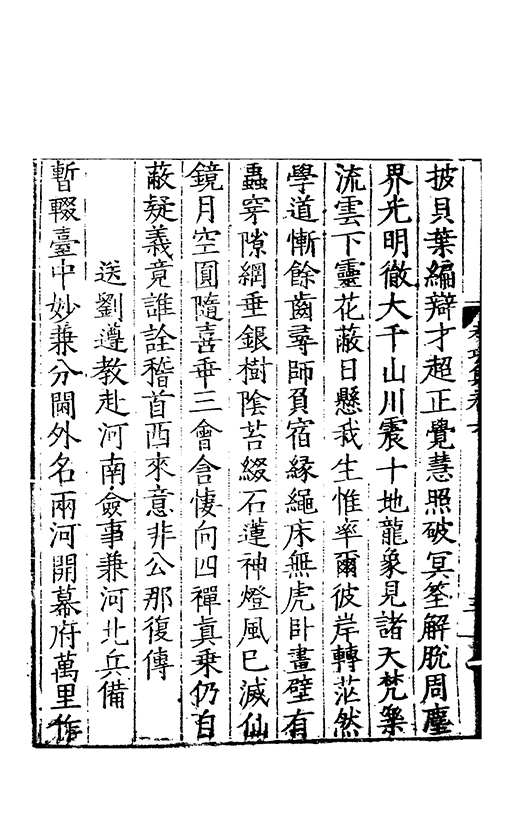 披貝葉編辯才超正覺慧照破冥筌解脫周塵
界光明徹大千山川震十地龍象見諸天梵樂
流雲下靈花蔽日懸我生惟率爾彼岸轉茫然
學道慚餘齒尋師負宿緣繩床無虎卧畫壁有
蟲穿隙網垂銀樹陰苔綴石蓮神燈風已滅仙
鏡月空圓隨喜乖三會含悽向四禪真乘仍自
蔽疑義竟誰詮稽首西來意非公那復傳
送劉遵教赴河南僉事兼河北兵備
暫輟臺中妙兼分閫外名兩河開幕府萬里作